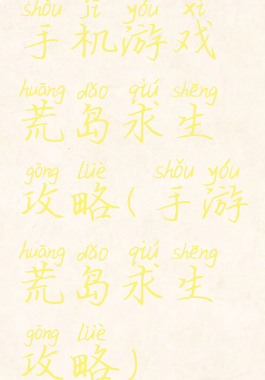 shǒu jī yóu xì
手机游戏
huāng dǎo qiú shēng
荒岛求生
gōng lüè shǒu yóu
攻略(手游
huāng dǎo qiú shēng
荒岛求生
gōng lüè
攻略)